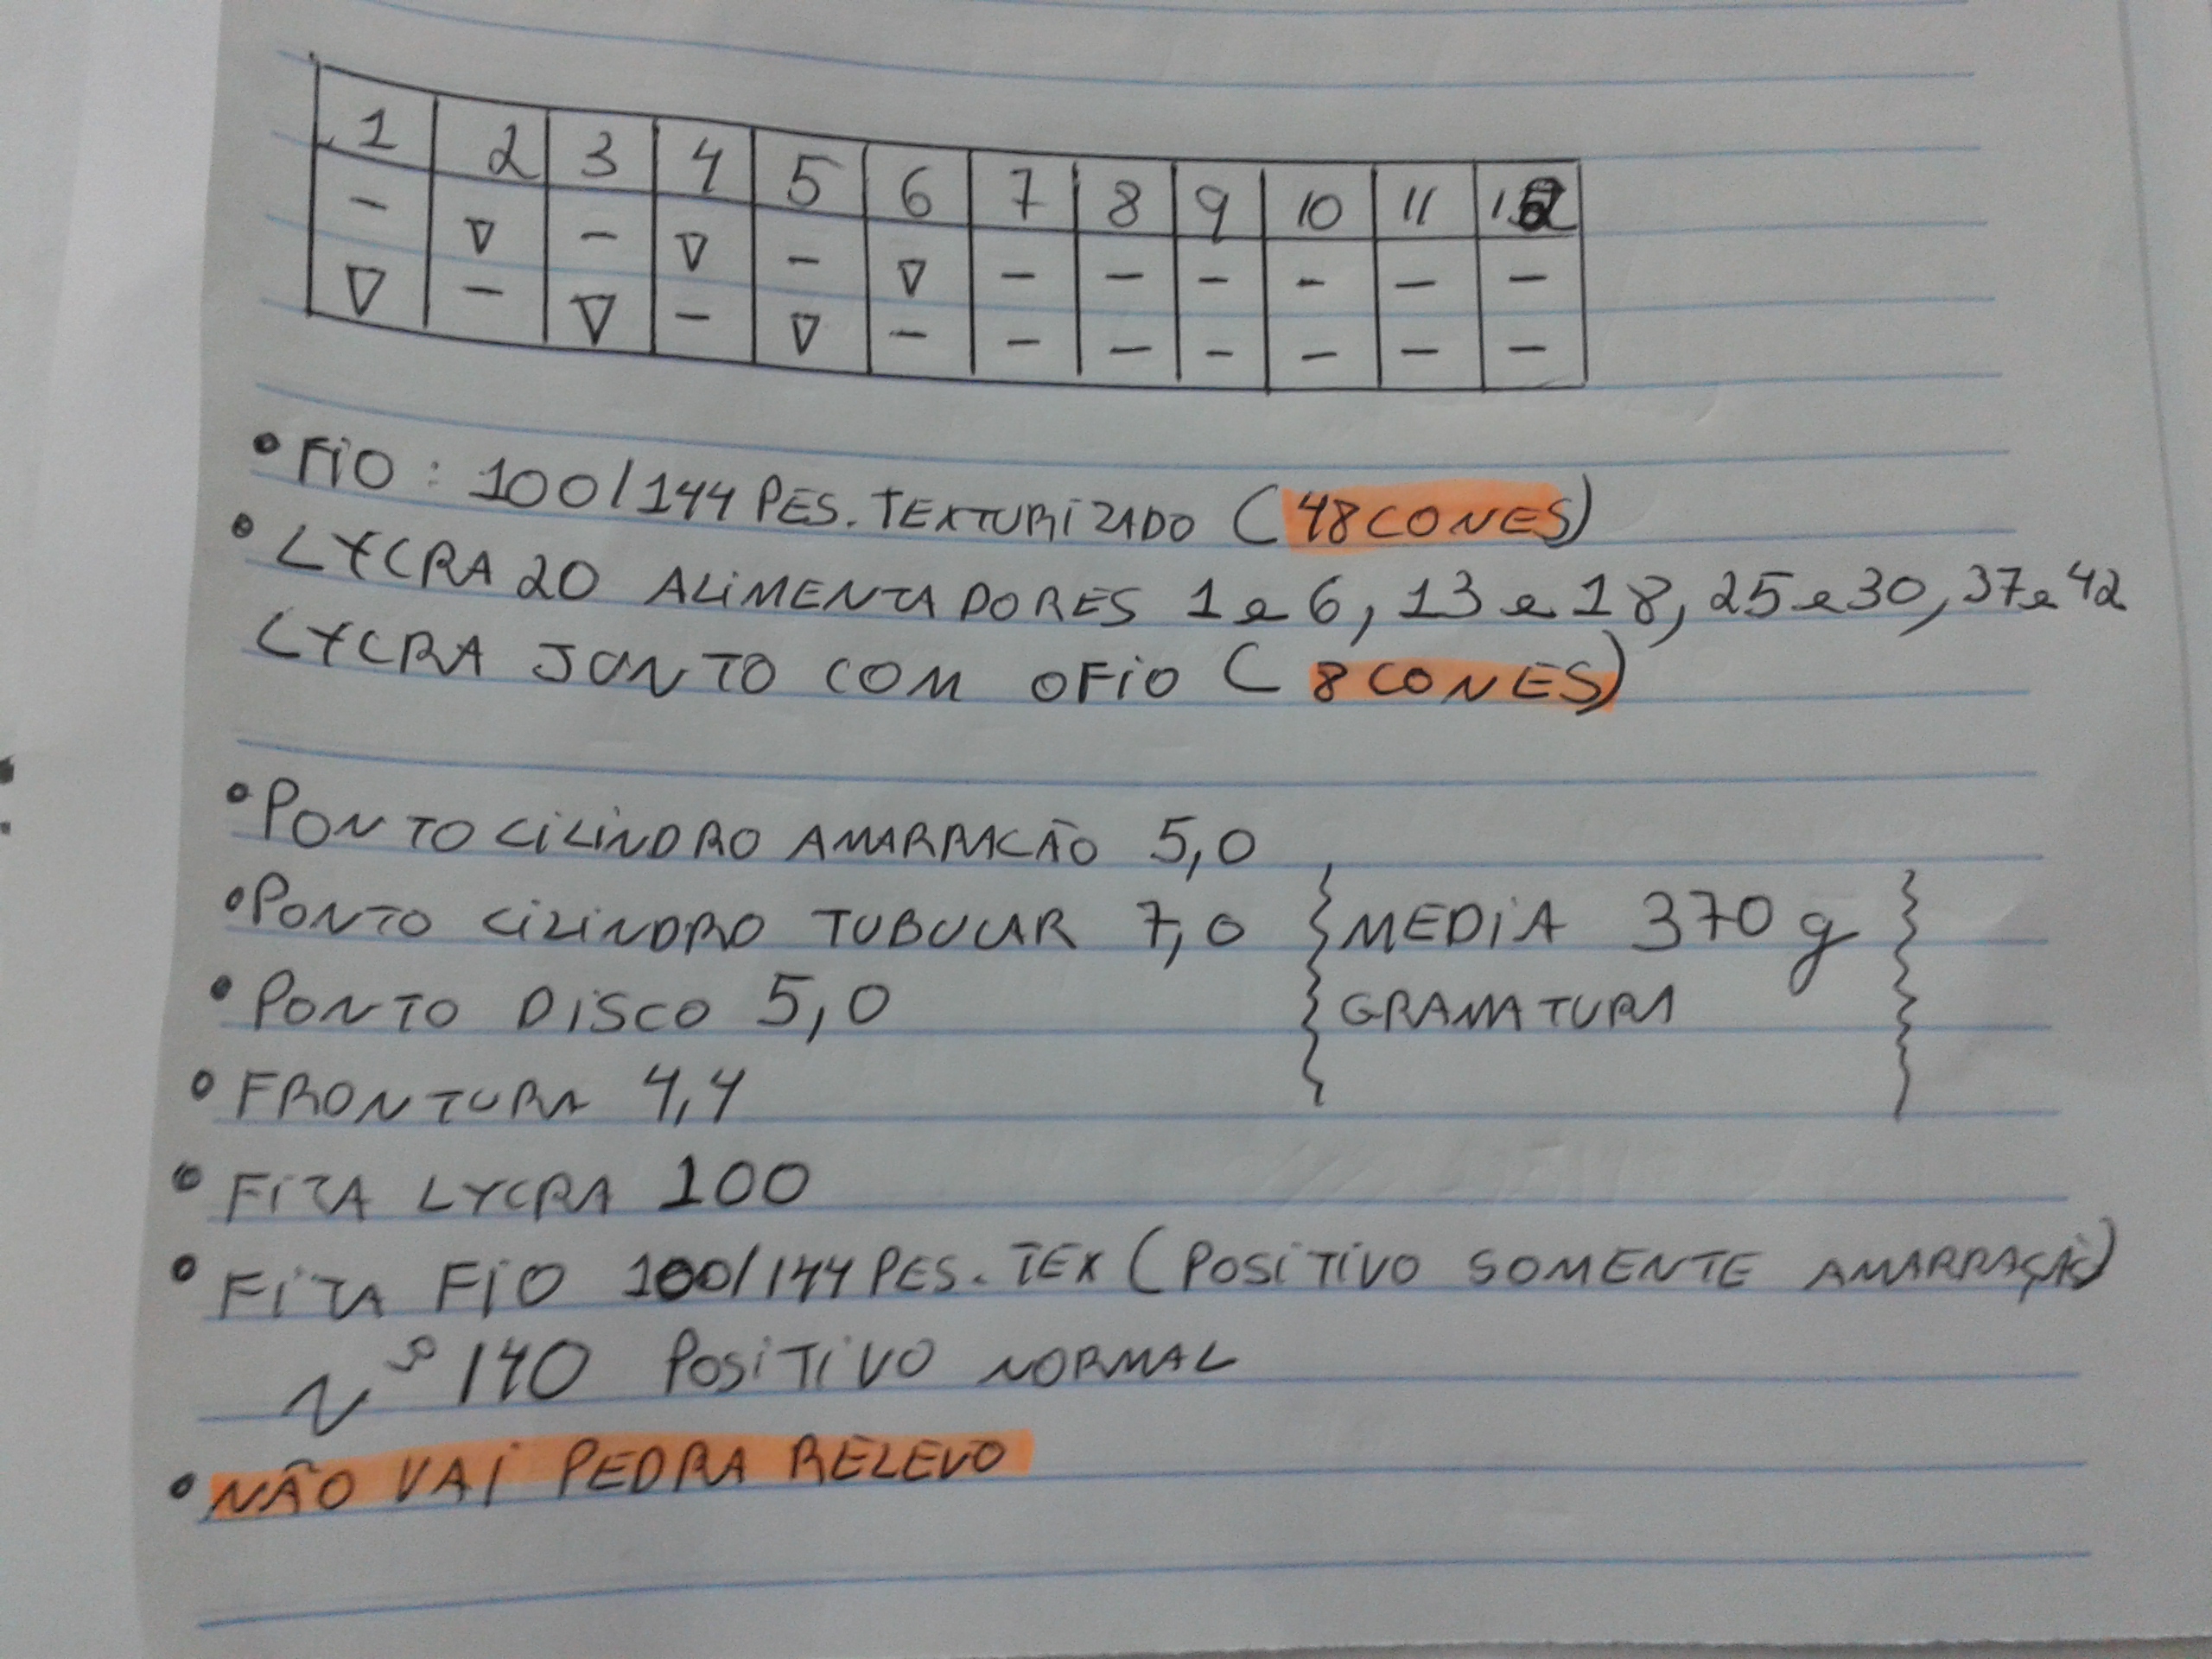 1 2 3 4 5 6 7 8 9 10 11 12
- ∇ - ∇ - ∇ - - - - - -
∇ - ∇ - ∇ - - - - - - -
• FIO: 100/144 PES. TEXTURIZADO (48 CONES)
• LYCRA 20 ALIMENTADORES 1 e 6, 13 e 18, 25 e 30, 37 e 42
LYCRA JUNTO COM O FIO (8 CONES)
• PONTO CILINDRO AMARRAÇÃO 5,0
• PONTO CILINDRO TUBULAR 7,0 } MEDIA 370 g }
• PONTO DISCO 5,0 } GRAMATURA }
• FRONTURA 4,4
• FITA LYCRA 100
• FITA FIO 100/144 PES. TEX (POSITIVO SOMENTE AMARRAÇÃO)
140 POSITIVO NORMAL
• NÃO VAI PEDRA RELEVO